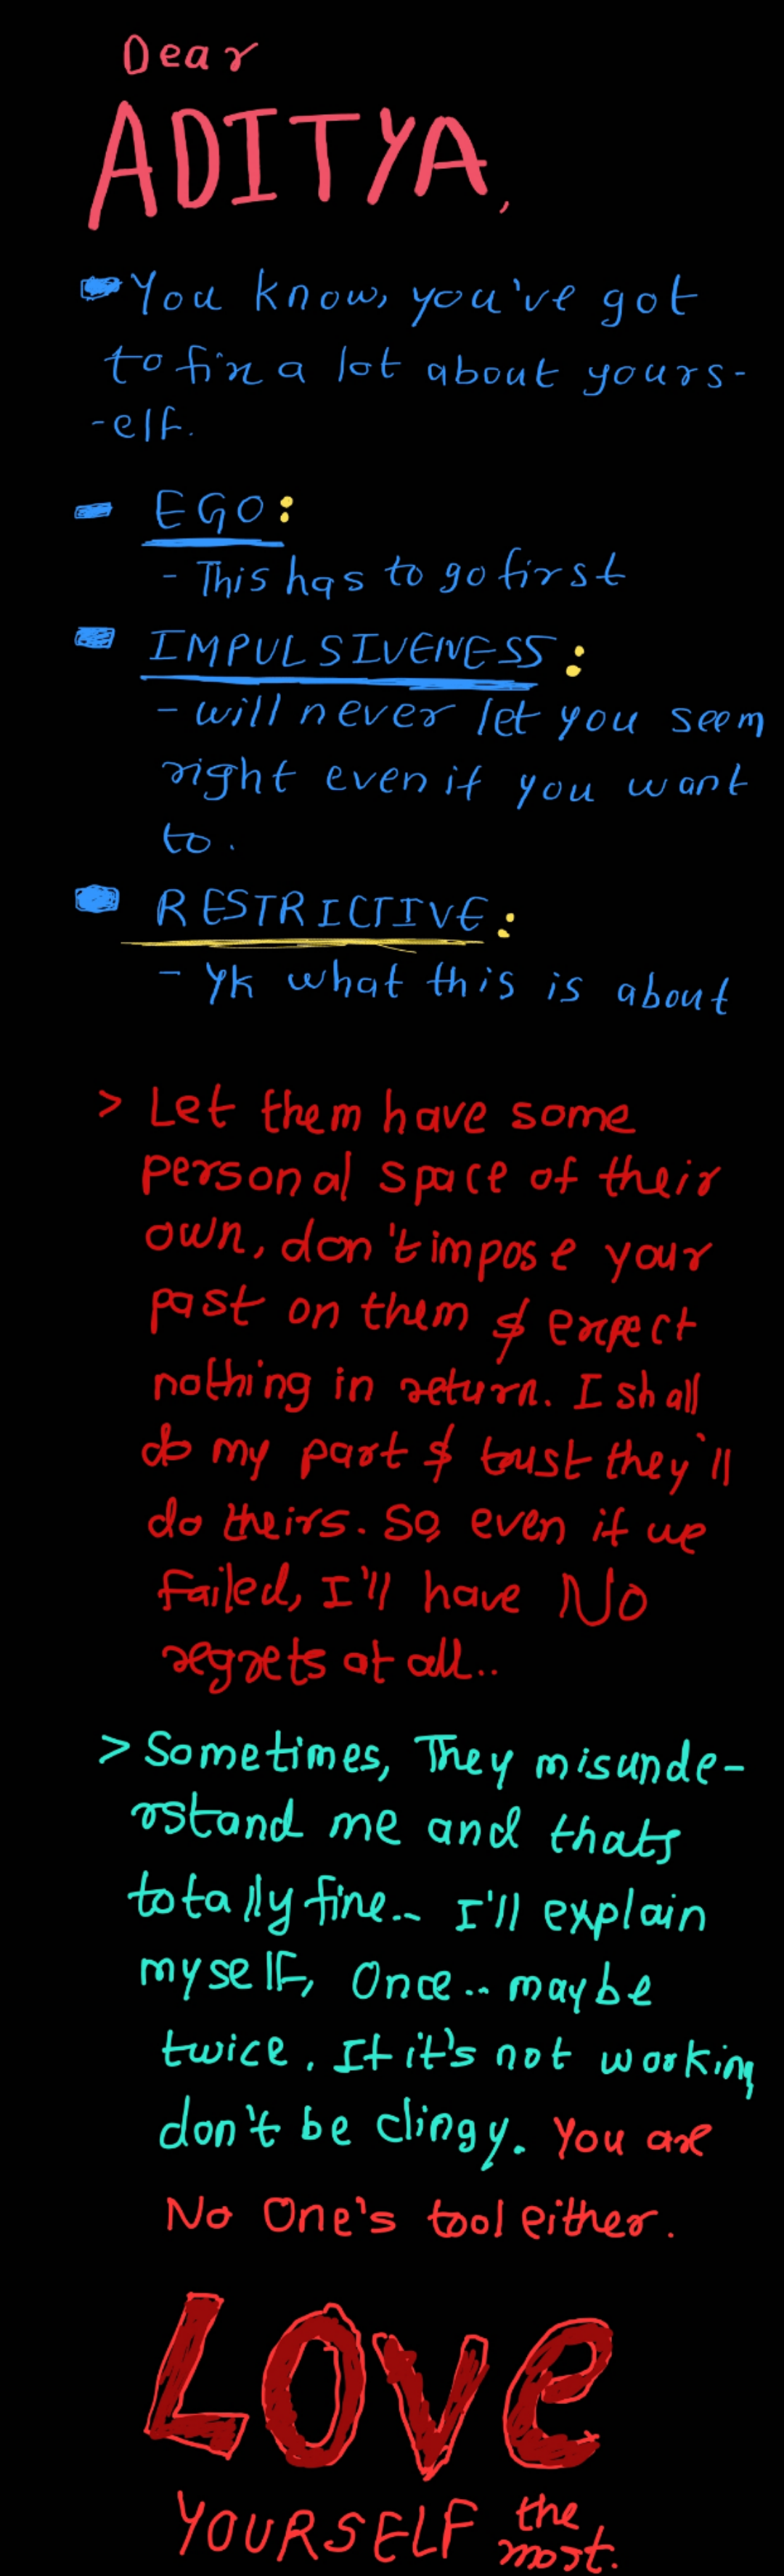 Dear
ADITYA,
You know, you've got
to fix a lot about yours-
-elf.
- EGO:
- This has to go first
IMPULSIVENESS:
- will never let you seem
right even if you want
to.
RESTRICTIVE:
- Yk what this is about
> Let them have some
personal space of their
own, don't impose your
past on them & expect
nothing in return. I shall
do my part & trust they'll
do theirs. So, even if we
failed, I'll have No
regrets at all..
> Sometimes, They misunde-
rstand me and thats
totally fine.. I'll explain
myself, Once.. maybe
twice. If it's not working
don't be clingy. You are
No One's tool either.
LOVe
YOURSELF the
most.